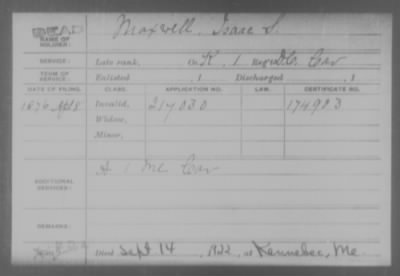 DEAD
NAME OF SOLDIER: Maxwell, Isaac S.
SERVICE: Late rank, Co K, 1 Reg't D.C. Cav
TERM OF SERVICE: Enlisted , 1 Discharged , 1
DATE OF FILING. CLASS. APPLICATION NO. LAW. CERTIFICATE NO.
1876 Apl 8 Invalid, 217030 174903
Widow,
Minor,
ADDITIONAL SERVICES: 1 Me Cav
REMARKS:
Died Sept 14, 1922, at Kennebec, Me